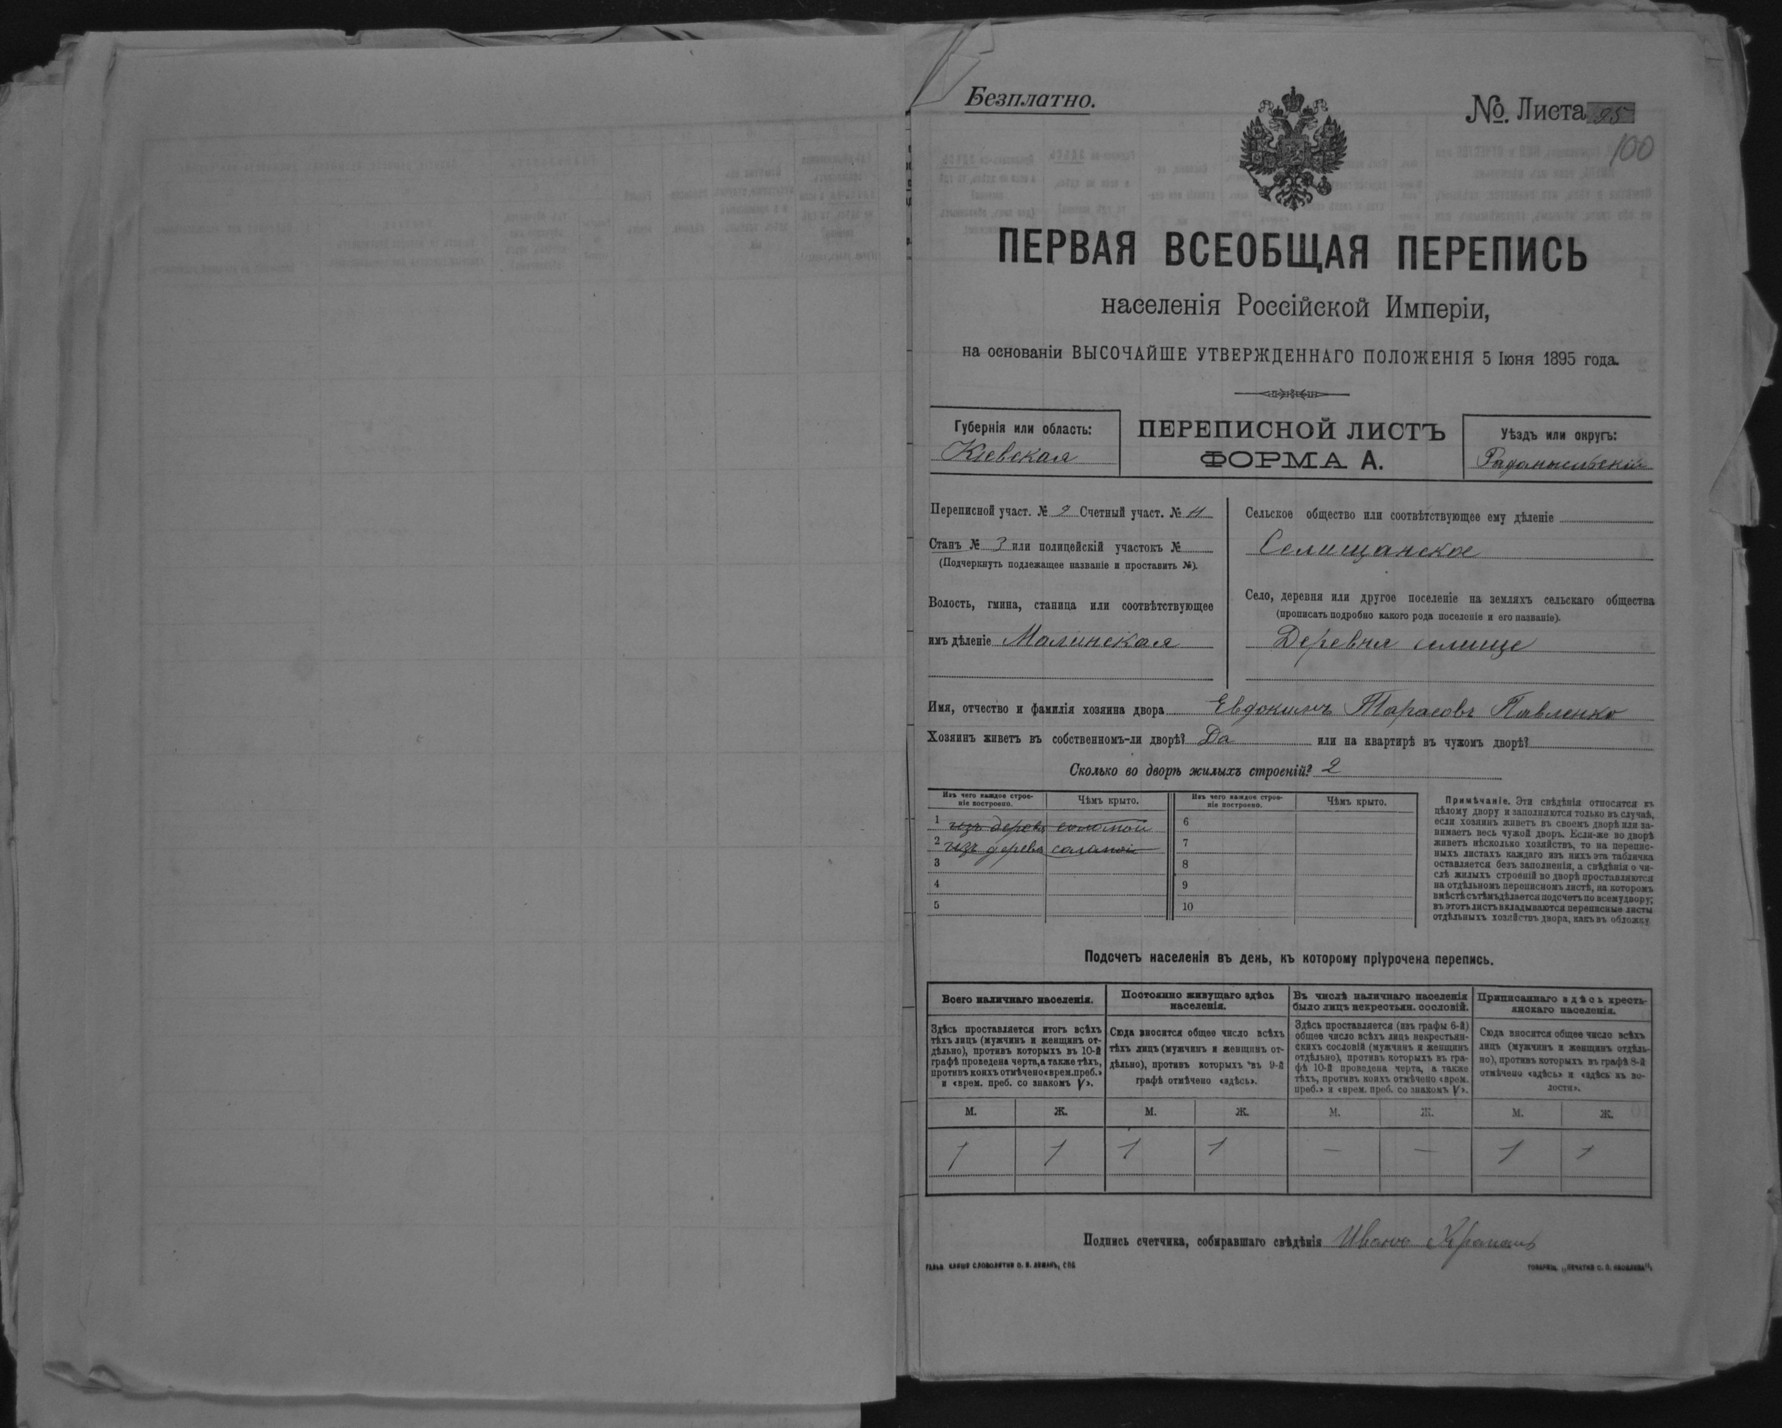 Безплатно.
№ Листа 95
100
ПЕРВАЯ ВСЕОБЩАЯ ПЕРЕПИСЬ
населенія Россійской Имперіи,
на основаніи ВЫСОЧАЙШЕ УТВЕРЖДЕННАГО ПОЛОЖЕНІЯ 5 Іюня 1895 года.
Губернія или область:
Кіевская
ПЕРЕПИСНОЙ ЛИСТЪ
ФОРМА А.
Уѣздъ или округъ:
Радомысльскій
Переписной участ. № 9 Счетный участ. № 11
Станъ № 3 или полицейскій участокъ №
(Подчеркнуть подлежащее названіе и проставить №).
Волость, гмина, станица или соотвѣтствующее
имъ дѣленіе Малинская
Сельское общество или соотвѣтствующее ему дѣленіе
Селищанское
Село, деревня или другое поселеніе на земляхъ сельскаго общества
(прописать подробно какого рода поселеніе и его названіе).
Деревня
Имя, отчество и фамилія хозяина двора Евдокимъ Тарасовъ Павленко
Хозяинъ живетъ въ собственномъ-ли дворѣ? Да или на квартирѣ въ чужомъ дворѣ?
Сколько во дворѣ жилыхъ строеній? 2
Изъ чего каждое строе-
ніе построено.
Чѣмъ крыто.
1 изъ дерева соломой
2 изъ дерева
3
4
5
Изъ чего каждое строе-
ніе построено.
Чѣмъ крыто.
6
7
8
9
10
Примѣчаніе. Эти свѣдѣнія относятся къ
цѣлому двору и заполняются только въ случаѣ,
если хозяинъ живетъ въ своемъ дворѣ или за-
нимаетъ весь чужой дворъ. Если-же во дворѣ
живетъ нѣсколько хозяйствъ, то на перепис-
ныхъ листахъ каждаго изъ нихъ эта табличка
оставляется безъ заполненія, а свѣдѣнія о чи-
слѣ жилыхъ строеній во дворѣ проставляются
на отдѣльномъ переписномъ листѣ, на которомъ
вмѣстѣ съ тѣмъ дѣлается подсчетъ по всему двору;
въ этотъ листъ вкладываются переписные листы
отдѣльныхъ хозяйствъ двора, какъ въ обложку
Подсчетъ населенія въ день, къ которому пріурочена перепись.
Всего наличнаго населенія.
Здѣсь проставляется итогъ всѣхъ
тѣхъ лицъ (мужчинъ и женщинъ от-
дѣльно), противъ которыхъ въ 10-й
графѣ проведена черта, а также тѣхъ,
противъ коихъ отмѣчено «врем. преб.»
и «врем. преб. со знакомъ V».
Постоянно живущаго здѣсь
населенія.
Сюда вносится общее число всѣхъ
тѣхъ лицъ (мужчинъ и женщинъ от-
дѣльно), противъ которыхъ въ 9-й
графѣ отмѣчено «здѣсь».
Въ числѣ наличнаго населенія
было лицъ некрестьян. сословій.
Здѣсь проставляется (изъ графы 6-й)
общее число всѣхъ лицъ некрестьян-
скихъ сословій (мужчинъ и женщинъ
отдѣльно), противъ которыхъ въ гра-
фѣ 10-й проведена черта, а также
тѣхъ, противъ коихъ отмѣчено «врем.
преб.» и «врем. преб. со знакомъ V».
Приписаннаго здѣсь кресть-
янскаго населенія.
Сюда вносится общее число всѣхъ
лицъ (мужчинъ и женщинъ отдѣль-
но), противъ которыхъ въ графѣ 8-й
отмѣчено «здѣсь» и «здѣсь въ во-
лости».
М. Ж. М. Ж. М. Ж. М. Ж.
1 1 1 1 — — 1 1
Подпись счетчика, собиравшаго свѣдѣнія